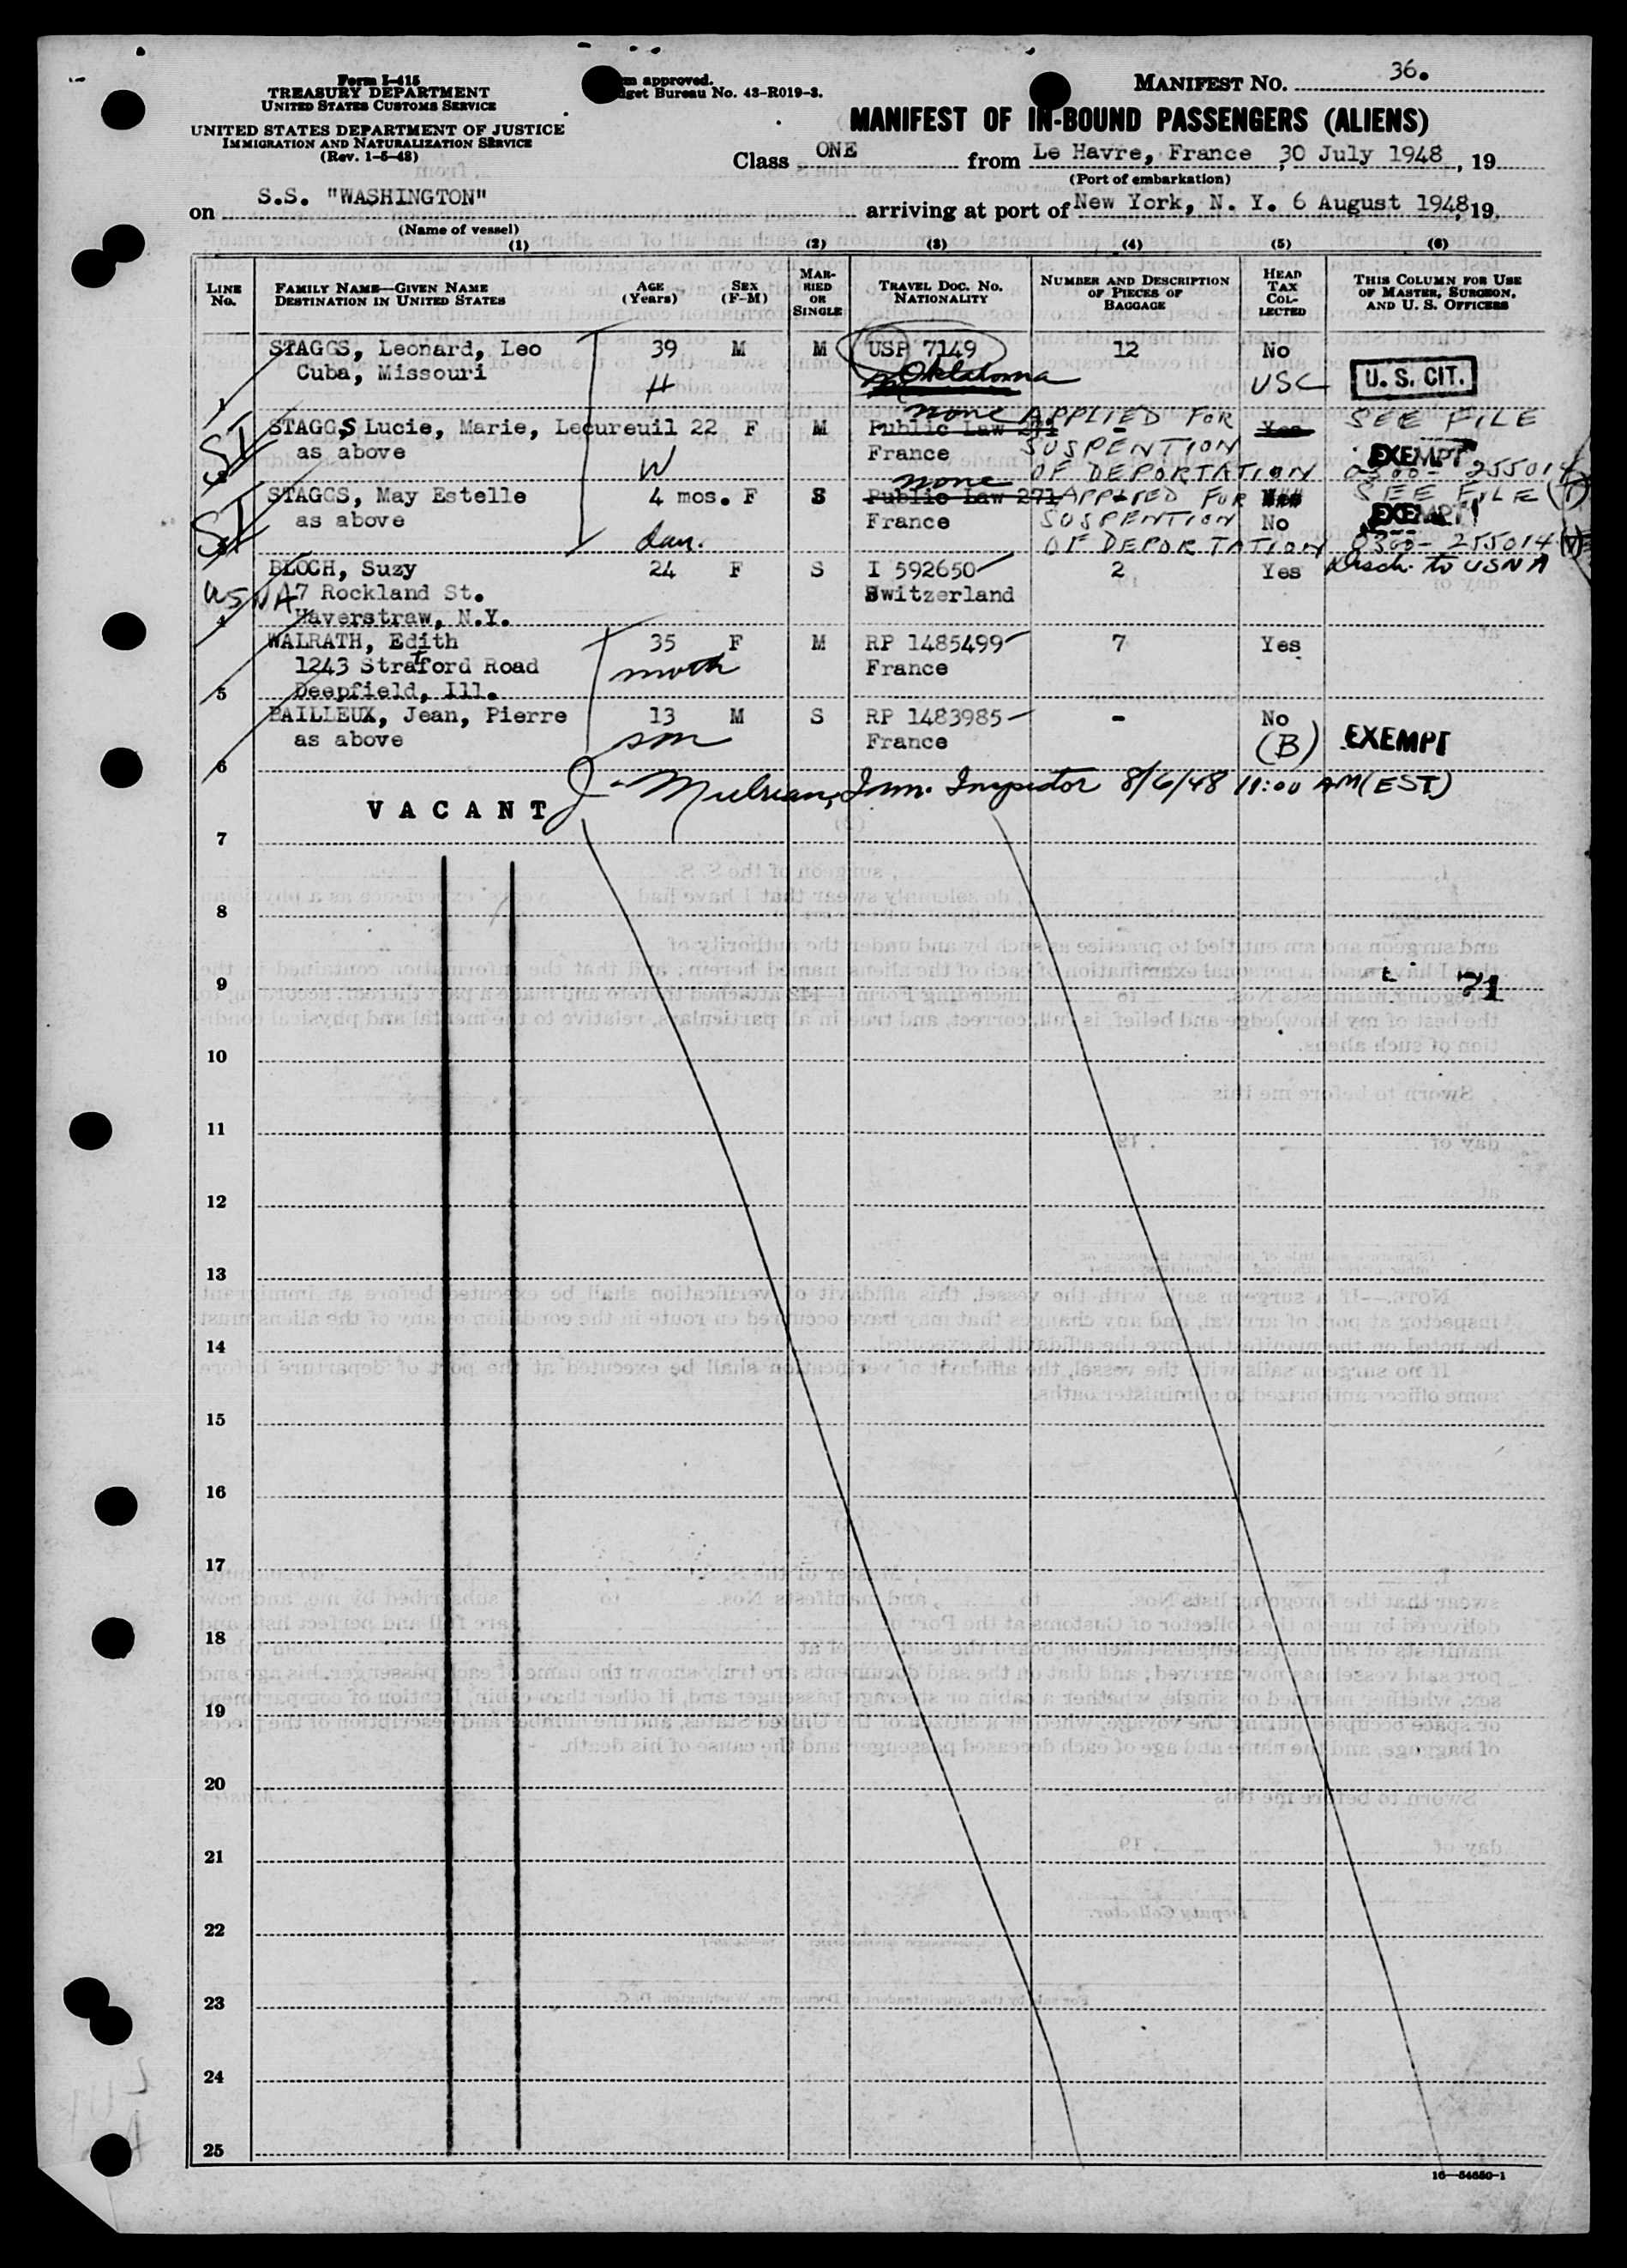 Form I-415
TREASURY DEPARTMENT
UNITED STATES CUSTOMS SERVICE
UNITED STATES DEPARTMENT OF JUSTICE
IMMIGRATION AND NATURALIZATION SERVICE
(Rev. 1-5-48)
approved.
Bureau No. 43-R019-3.
MANIFEST NO. 36.
MANIFEST OF IN-BOUND PASSENGERS (ALIENS)
Class ONE from Le Havre, France, 30 July 1948, 19
(Port of embarkation)
on S.S. "WASHINGTON" arriving at port of New York, N. Y. 6 August 1948, 19
(Name of vessel)
(1) (2) (3) (4) (5) (6)
LINE No. FAMILY NAME—GIVEN NAME DESTINATION IN UNITED STATES AGE (Years) SEX (F-M) MARRIED OR SINGLE TRAVEL DOC. NO. NATIONALITY NUMBER AND DESCRIPTION OF PIECES OF BAGGAGE HEAD TAX COLLECTED THIS COLUMN FOR USE OF MASTER, SURGEON, AND U. S. OFFICERS
STAGGS, Leonard, Leo 39 M M USP 7149 12 No
Cuba, Missouri H Oklahoma USC U. S. CIT.
1
none APPLIED FOR SEE FILE
STAGGS Lucie, Marie, Lecureuil 22 F M Public Law 271 - Yes
as above W France SUSPENTION EXEMPT
2 OF DEPORTATION 0300-255014
none
STAGGS, May Estelle 4 mos. F S Public Law 271 APPLIED FOR SEE FILE
as above France SUSPENTION No EXEMPT
3 dau. OF DEPORTATION 0300-255014
BLOCH, Suzy 24 F S I 592650 2 Yes Disch. to USNA
USNA 17 Rockland St. Switzerland
4 Haverstraw, N.Y.
WALRATH, Edith 35 F M RP 1485499 7 Yes
1243 Stratford Road moth France
5 Deepfield, Ill.
BAILLEUX, Jean, Pierre 13 M S RP 1483985 - No
as above son France (B) EXEMPT
6
Imm. Inspector 8/6/48 11:00 AM (EST)
VACANT
7
8
9
71
10
11
12
13
14
15
16
17
18
19
20
21
22
23
24
25
16—54650-1